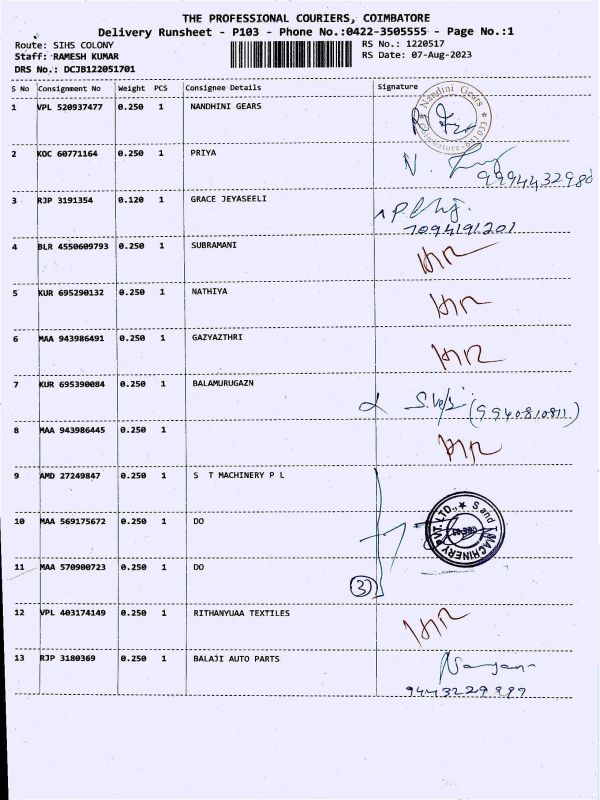 THE PROFESSIONAL COURIERS, COIMBATORE
Delivery Runsheet - P103 - Phone No.:0422-3505555 - Page No.:1
Route: SIHS COLONY RS No.: 1220517
Staff: RAMESH KUMAR RS Date: 07-Aug-2023
DRS No.: DCJB122051701
S No Consignment No Weight PCS Consignee Details Signature
1 VPL 520937477 0.250 1 NANDHINI GEARS
Nandini Gears
Coimbatore-641033
2 KOC 60771164 0.250 1 PRIYA
9994432980
3 RJP 3191354 0.120 1 GRACE JEYASEELI
7094191201
4 BLR 4550609793 0.250 1 SUBRAMANI
5 KUR 695290132 0.250 1 NATHIYA
6 MAA 943986491 0.250 1 GAZYAZTHRI
7 KUR 695390084 0.250 1 BALAMURUGAZN
8 MAA 943986445 0.250 1
9 AMD 27249847 0.250 1 S T MACHINERY P L
10 MAA 569175672 0.250 1 DO
S and T MACHINERY PVT. LTD.,
11 MAA 570900723 0.250 1 DO
3
12 VPL 403174149 0.250 1 RITHANYUAA TEXTILES
13 RJP 3180369 0.250 1 BALAJI AUTO PARTS